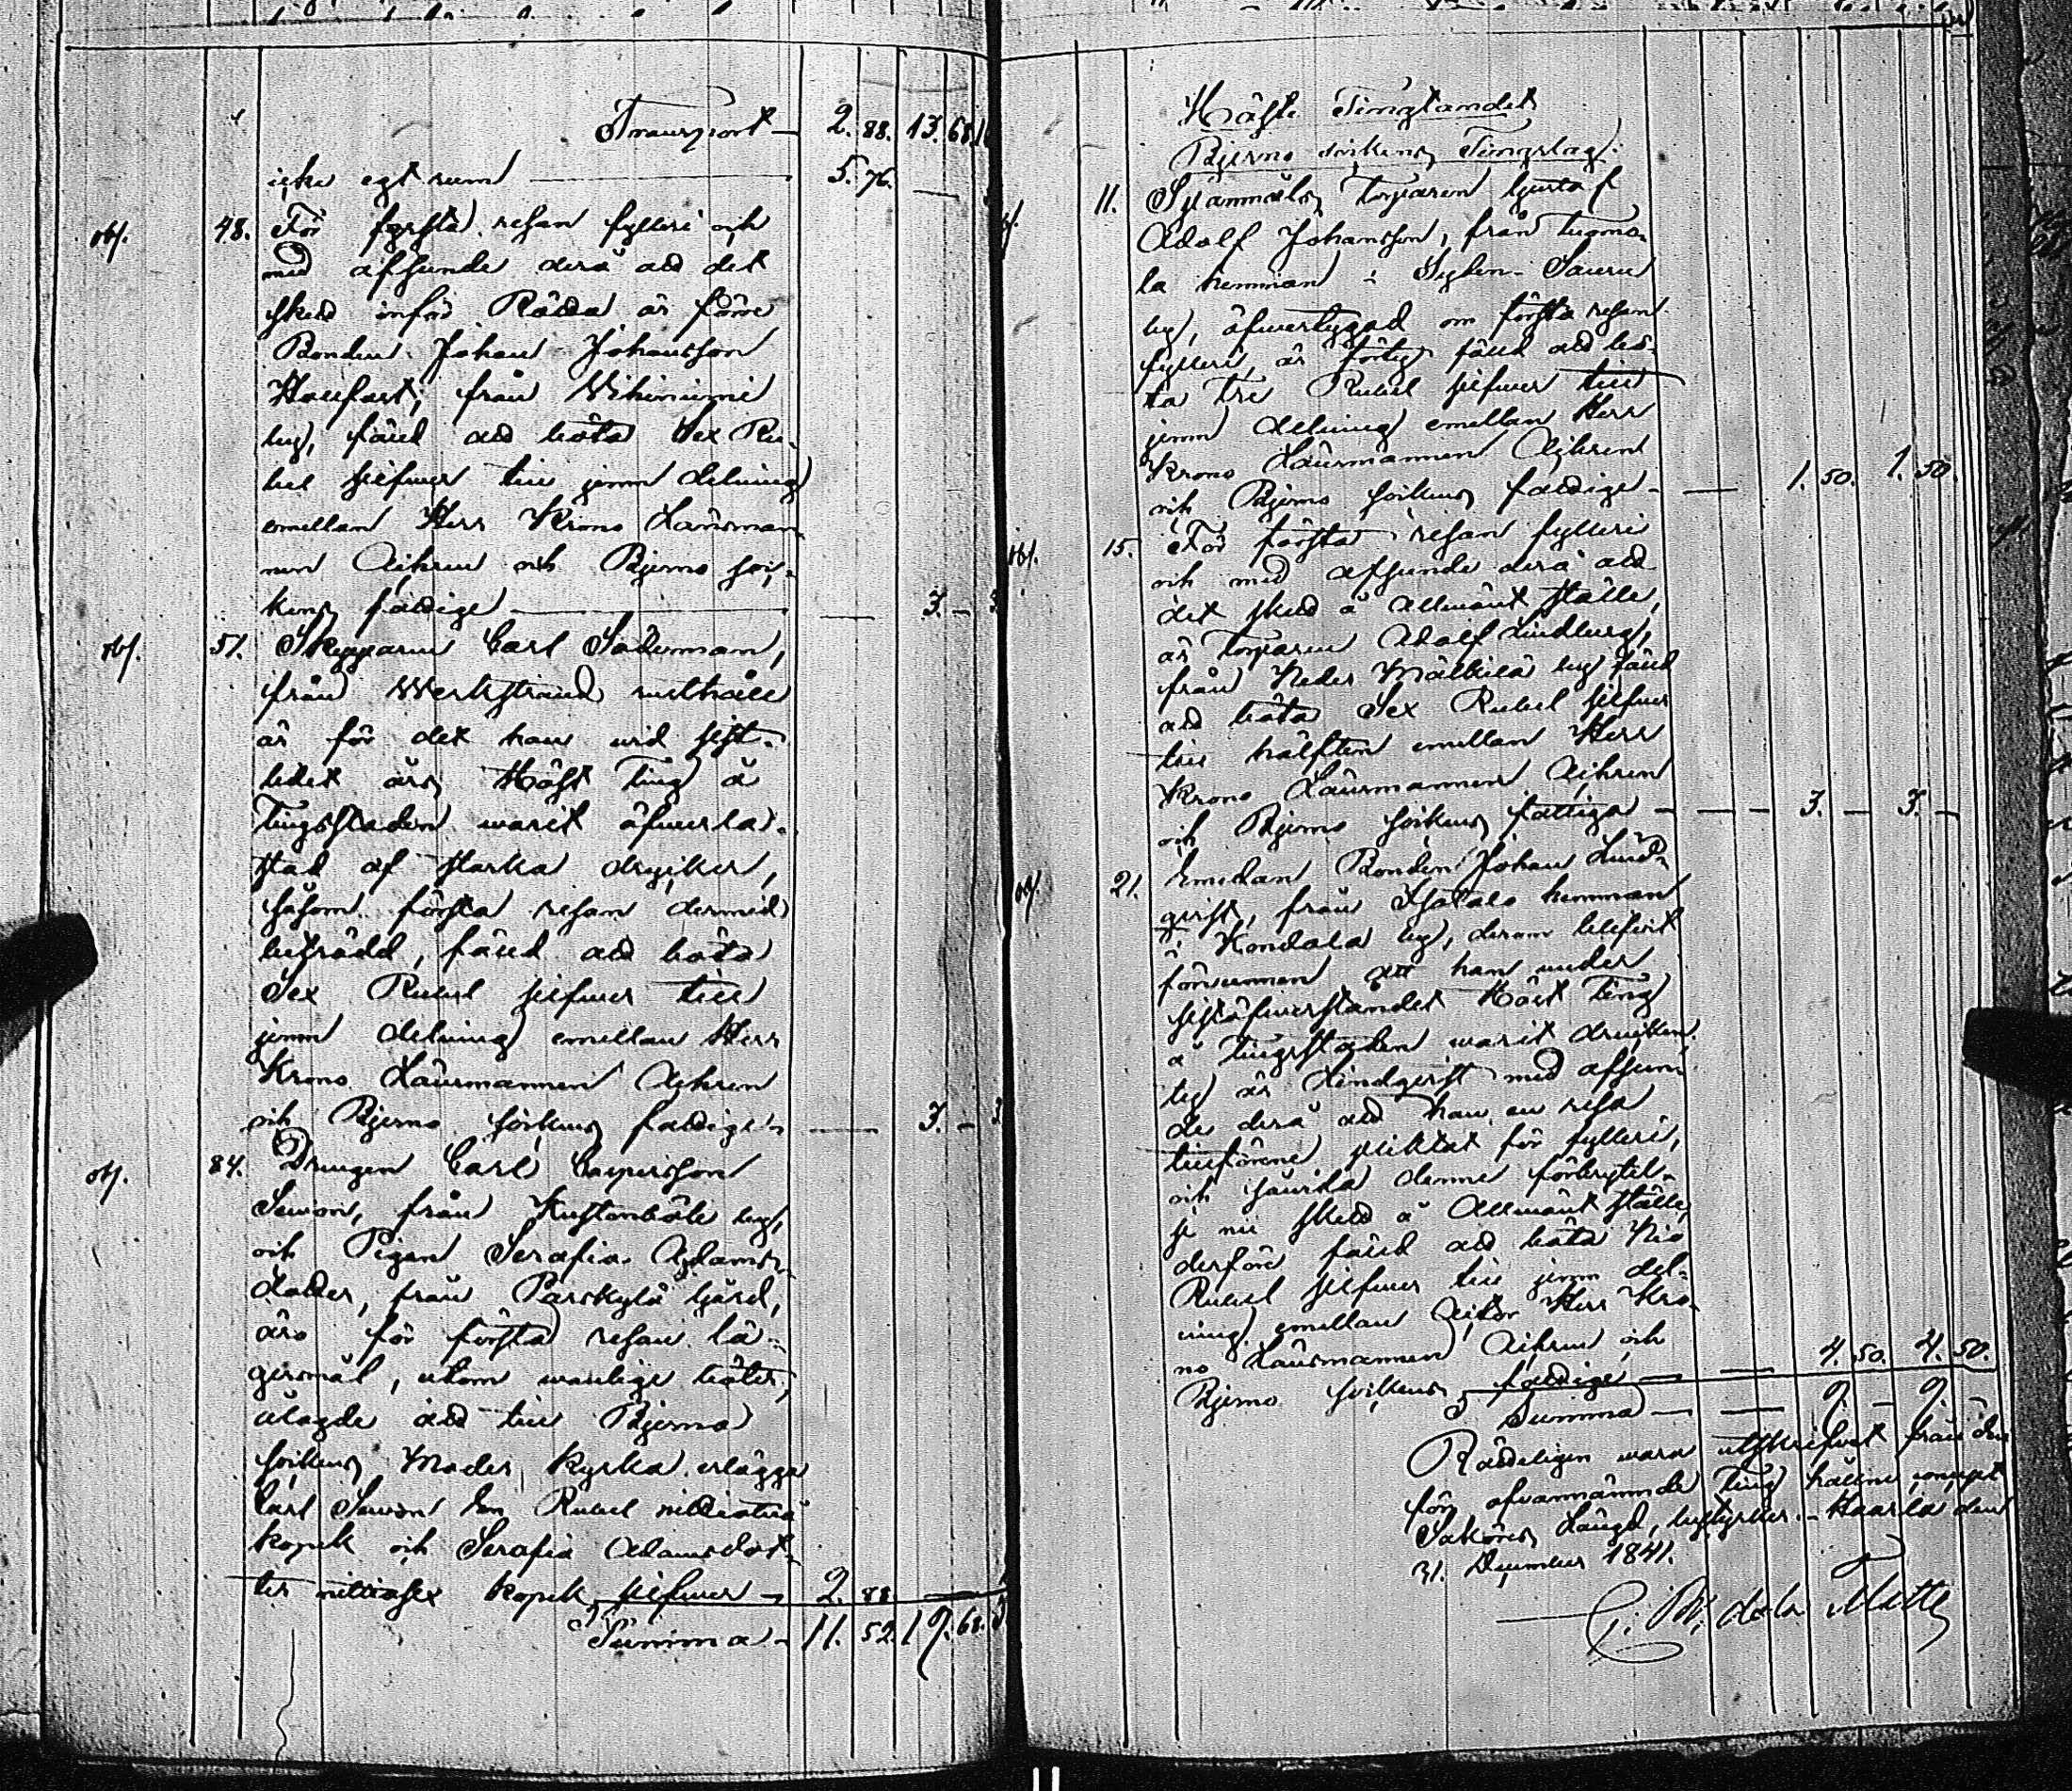 Transport — 2. 88. 13. 68.
icke egt rum — 5. 76. —
obs. 48. För första resan fylleri och
med afseende derå att det
skedd inför Rätta är förre
Bonden Johan Johansson
från Vihiniemi
by, fäld att böta Sex Ru-
bel silfver till jemn delning
emellan Herr Krono Länsman
nen Aihren och Bjerno soc-
kens fattige — 3. —
obs. 51. Skepparen Carl Söderman,
från Werkstrand rusthåll
är för det han vid sist-
ledet års Höst Ting å
Tingsstaden warit öfverla-
stad af starka drycker,
såsom första resan dermed
beträdd, fäld att böta
Sex Rubel silfver till
jemn delning emellan Herr
Krono Länsmannen Aihren
och Bjerno sockens fattige — 3. —
obs. 84. Drengen Carl Caspersson
Sewon, från Kustonböle by,
och Pigan Serafia Adams-
dotter, från Parskylä fjärd,
äro för första resan lä-
gersmål, utom wanliga böter,
ålagde att till Bjerno
sockens Moder kyrka erlägga
Carl Sewon En Rubel nittiotvå
kopek och Serafia Adamsdot-
ter nittiosex kopek silfver — 2. 88. —
Summa — 11. 52. 19. 68.
Höste Tingtandet
Bjerno sockens Tingslag.
11. Sytämäki Torparen Gustaf
Adolf Johansson, från Tuomo-
la hemman i Sylen-Sauru
by, öfvertygad om första resan
fylleri, är förty fäld att bö-
ta Tre Rubel silfver till
jemn delning emellan Herr
Krono Länsmannen Aihren
och Bjerno sockens fattige — 1. 50. 1. 50.
obs. 15. För första resan fylleri
och med afseende derå att
det skedd å allmänt ställe,
är Torparen Adolf Lindberg,
från Neder Mälkilä by fäld
att böta Sex Rubel silfver
till hälften emellan Herr
Krono Länsmannen Aihren
och Bjerno sockens fattiga — 3. — 3. —
obs. 21. Emedan Bonden Johan Lind-
qvist, från hemman
i Kondala by, derom blifvit
förvunnen att han under
sistöfverstandet Höst Ting
å Tingsstaden warit drucken
ty är Lindqvist med afseen-
de derå att han en resa
tillförene pliktat för fylleri,
och sådan denna förbrytel-
se nu skedd å Allmänt ställe,
derföre fäld att böta Nio
Rubel silfver till jemn del-
ning emellan Actor Herr Kro-
no Länsmannen Aihren och
Bjerno sockens fattige — 4. 50. 4. 50.
Summa — 9. — 9. —
Rätteligen vara utskrifvet från den
för ofvannämnde Ting hållne concept
Saköres Längd, betygar. Haarla den
31. December 1841.
G. W. de la Motte